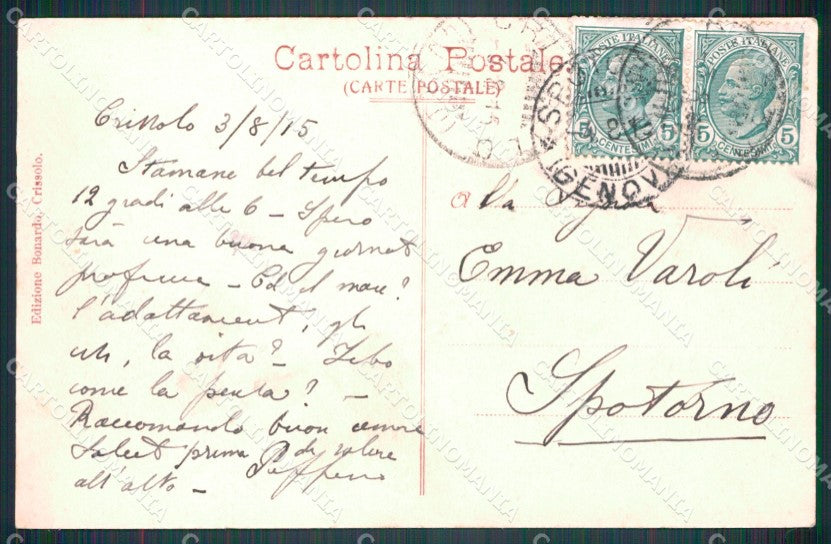 Cartolina Postale
(CARTE POSTALE)
POSTE ITALIANE
5 CENTESIMI 5
POSTE ITALIANE
5 CENTESIMI 5
(GENOVA)
Edizione Bonardo, Crissolo.
Crissolo 3/8/15
Stamane bel tempo
12 gradi alle 6 - Spero
sarà una buona giornat
Ed il mare?
l'adattament, gli
la vita?
come la pensa? -
Raccomando buon umore
Salut prima di salire
all'alto - Peppino
a la Sig
Emma Varoli
Spotorno
CARTOLINOMANIA